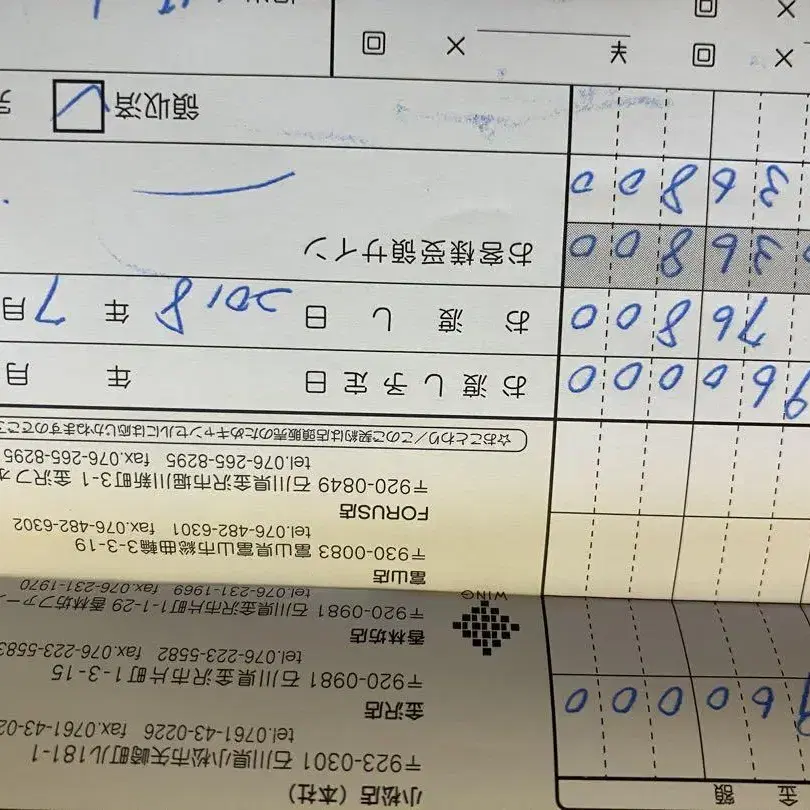 金額
小松店（本社）
〒923-0301 石川県小松市矢崎町ル181-1
tel.0761-43-0226 fax.0761-43-02
金沢店
〒920-0981 石川県金沢市片町1-3-15
tel.076-223-5582 fax.076-223-5583
香林坊店
〒920-0981 石川県金沢市片町1-1-29 香林坊ファ
tel.076-231-1969 fax.076-231-1970
WING
富山店
〒930-0083 富山県富山市総曲輪3-3-19
tel.076-482-6301 fax.076-482-6302
FORUS店
〒920-0849 石川県金沢市堀川新町3-1 金沢フォ
tel.076-265-8295 fax.076-265-8295
☆おことわり／このご契約は店頭販売のためキャンセルには応じかねますのでご
960000
960000
お渡し予定日 年 月
76800
お渡し日 2018年 7月
36800
お客様受領サイン
36800
領収済
× 回
末 × 回
× 回